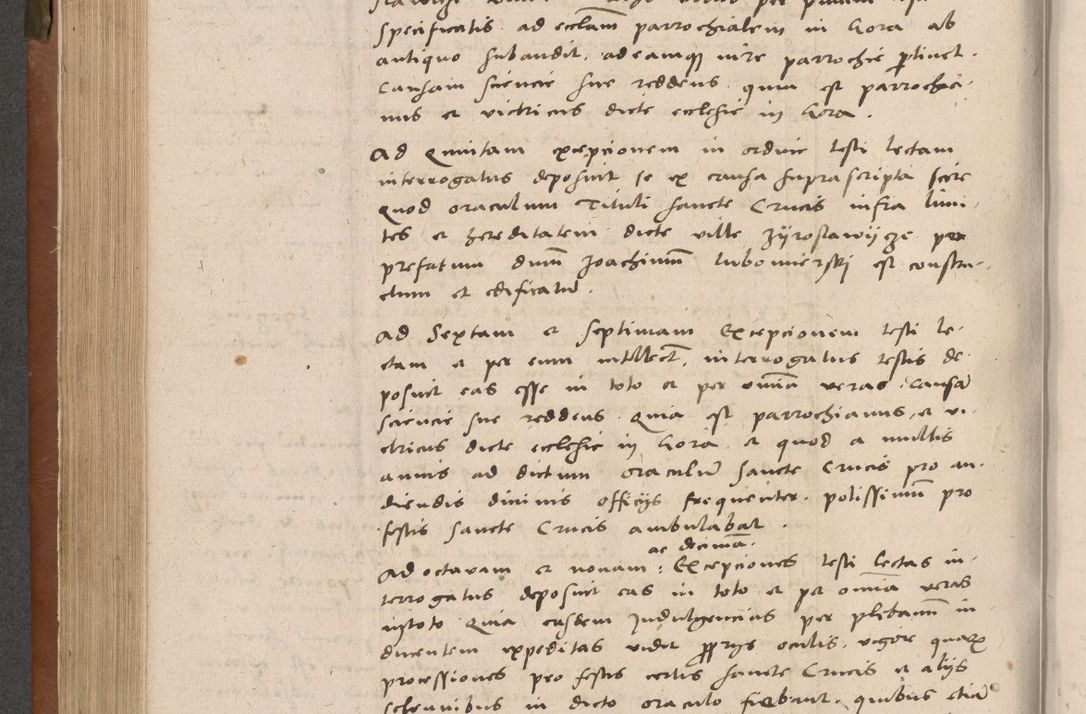 specificatis ad eccłam parrochialem in Gora ab
antiquo subaudit, adeamqȝ iure parrochie ptinet.
Causam sciencie sue reddens quia est parrochia-
nus et victricus dicte ecclesie in Gora.
Ad Quintam excepcionem in ordine testi lectam
interrogatus deposuit se ex causa suprascripta scire
quod oraculum Tituli sancte Crucis infra limi-
tes et hereditatem dicte ville Zÿroslawijcze per
prefatum dnum Joachimum Lubomierskj est constru-
ctum et edificatū.
Ad Sextam et septimam Excepcionem testi le-
ctam et per eum intellect. interrogatus testis de-
posuit eas esse in toto et per omnia veras. Causā
sciencie sue reddens. Quia est parrochianus et vi-
ctricus dicte ecclesie in Gora et quod a multis
annis ad dictum oraculum sancte Crucis pro au-
diendis diuinis officijs frequenter. potissimū pro
festis sancte Crucis ambulabat.
ac decimā.
Ad octauam et nonam: Excepciones testi lectas in-
terrogatus deposuit eas in toto et per omnia veras
Quia easdem Indulgencias per plebanū in
ducentem expeditas vidit pprijs oculis, vigore quarȝ
processiones pro festis certis sancte Crucis et alijs
solennibus in dicto oraculo fiebant. quibus etiā